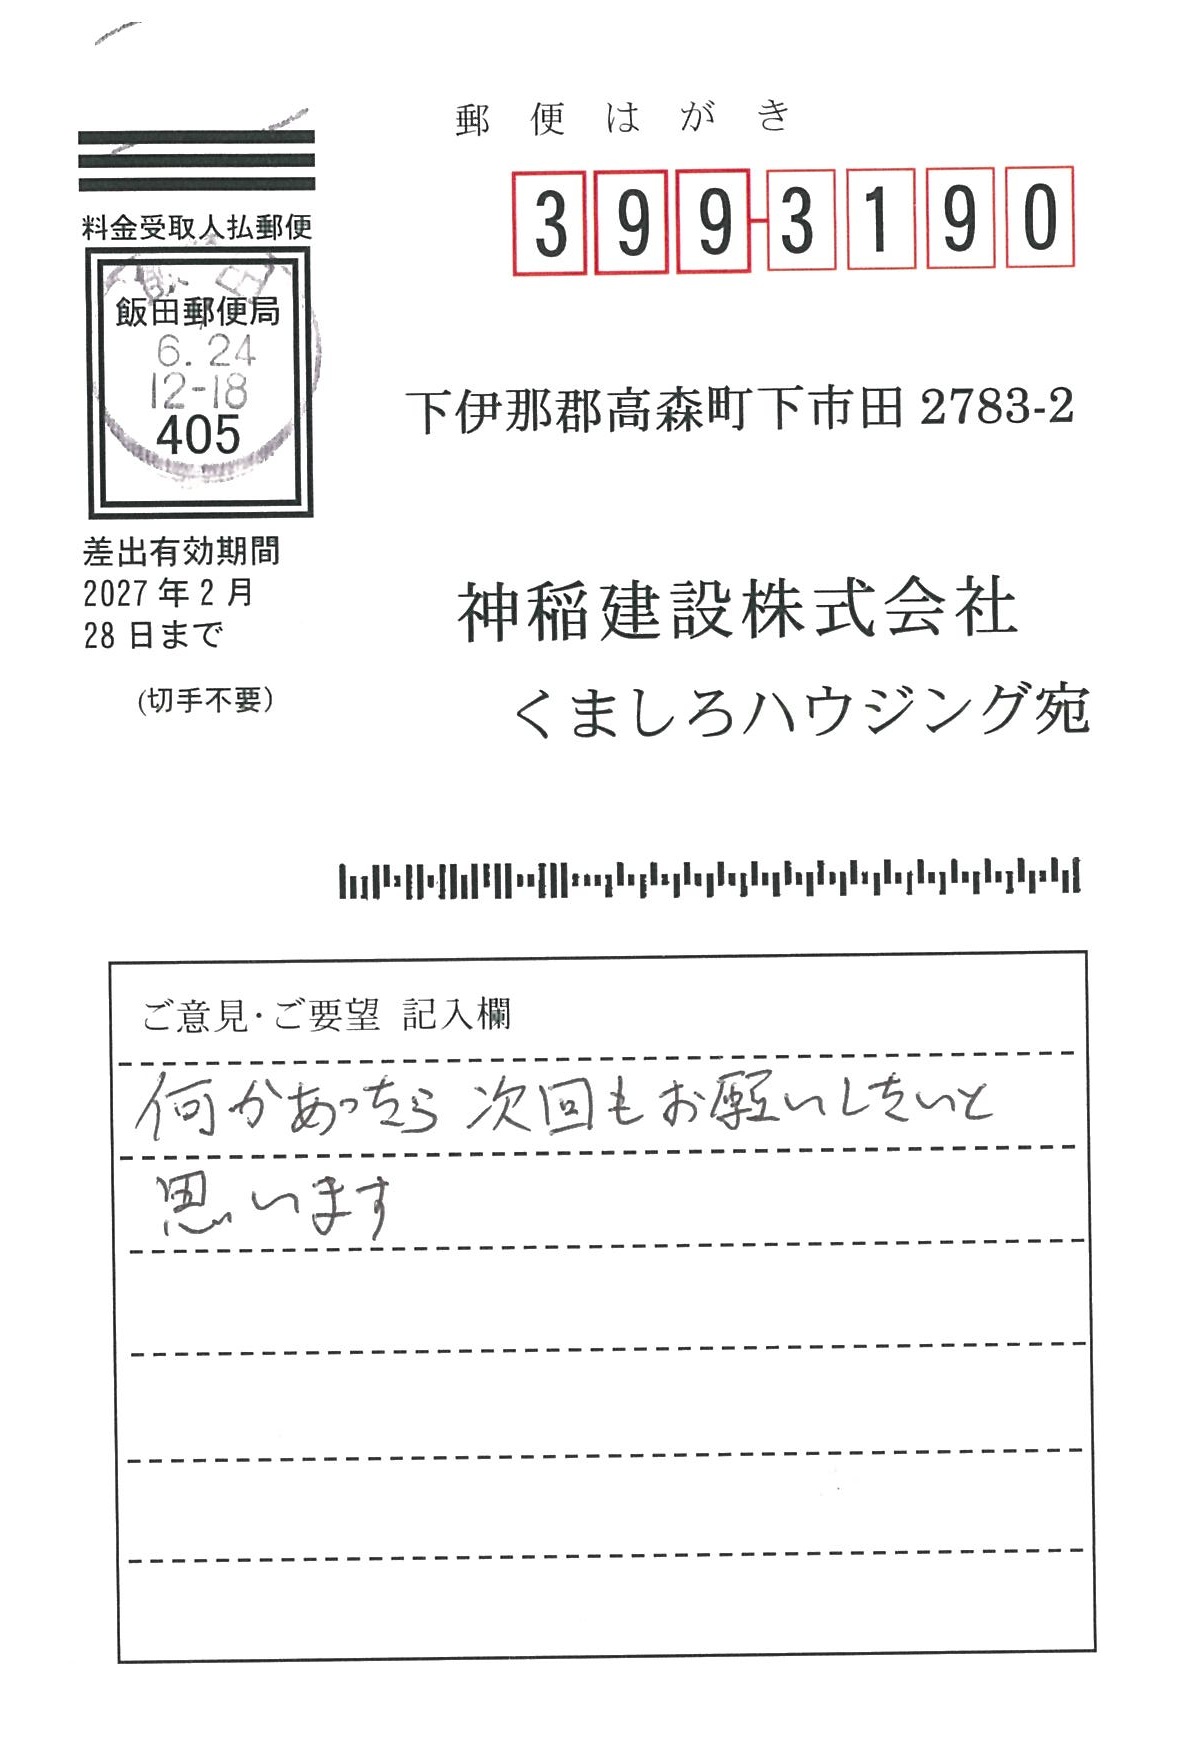 郵便はがき
399-3190
料金受取人払郵便
飯田郵便局
6.24
12-18
405
差出有効期間
2027年2月
28日まで
(切手不要)
下伊那郡高森町下市田2783-2
神稲建設株式会社
くましろハウジング宛
ご意見・ご要望 記入欄
何かあったら次回もお願いしたいと
思います